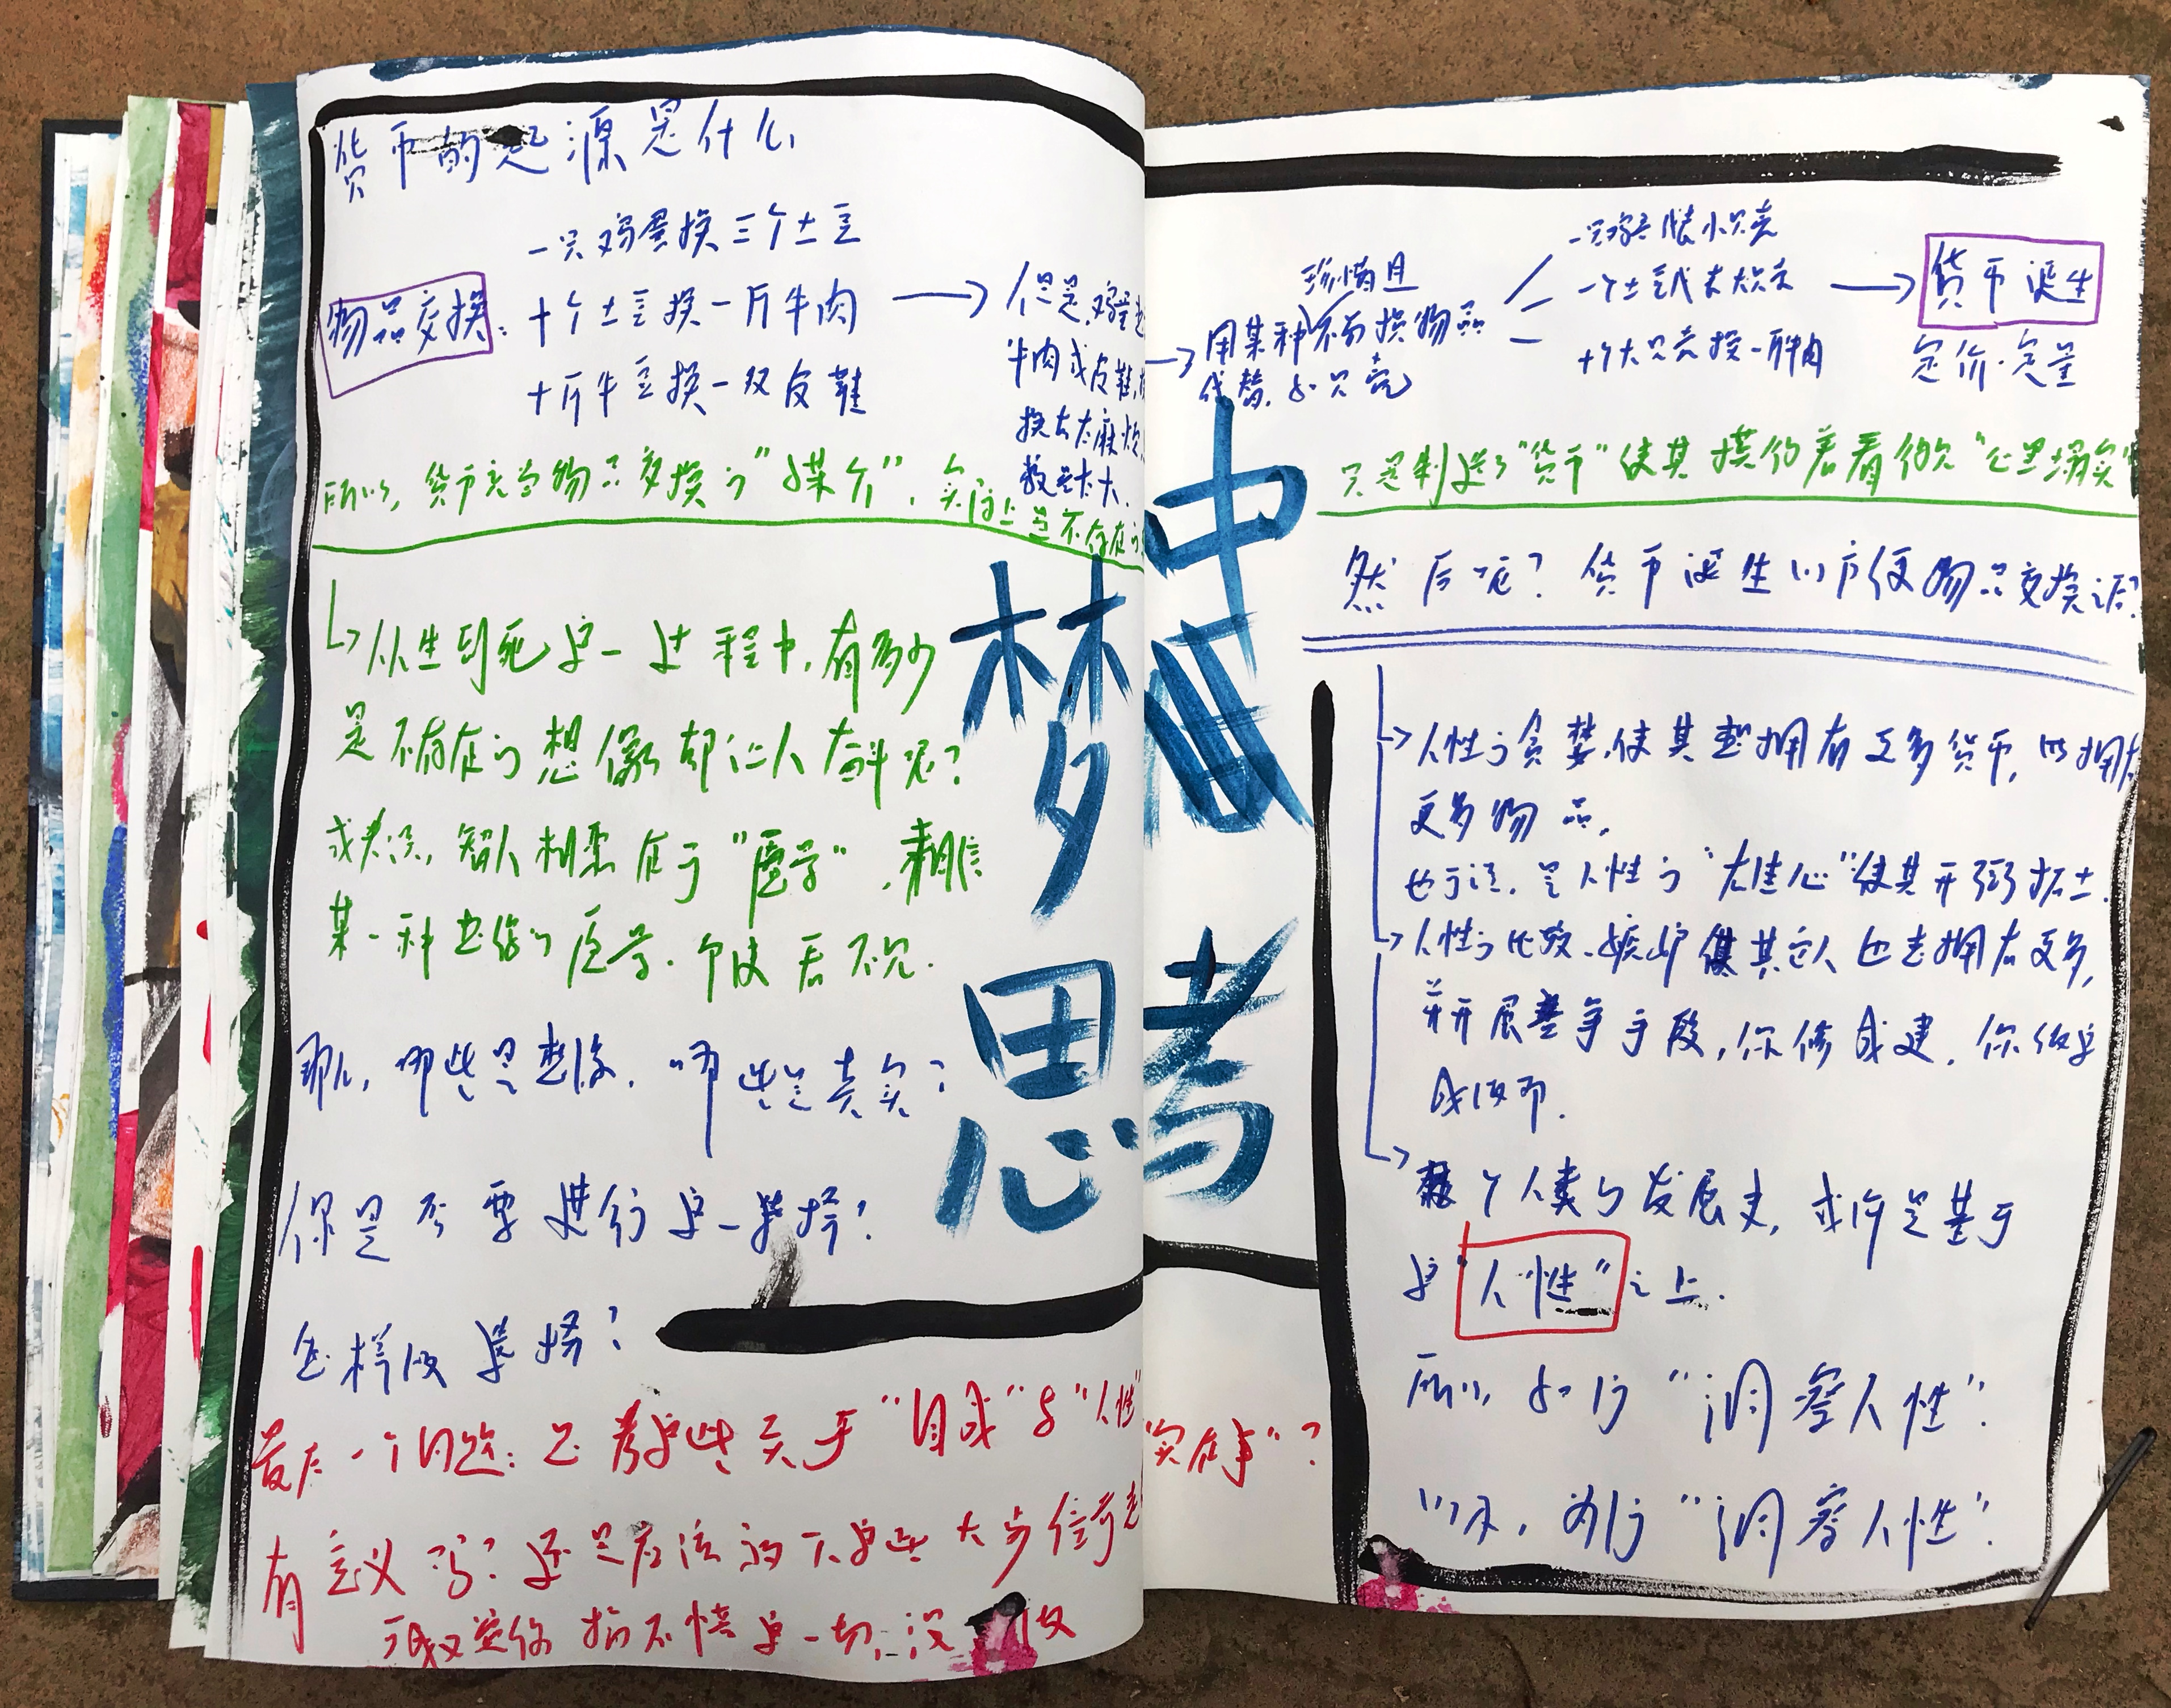 货币的起源是什么
一只鸡蛋换三个土豆
物品交换：十个土豆换一斤牛肉
十斤牛豆换一双皮鞋
但是，鸡蛋
牛肉或皮鞋，
换去太麻烦，
数量太大．
所以，货币充当物品交换的"媒介"，实际上是不存在的
从生到死这一过程中，有多少
是不存在的想像却让人奋斗呢？
或者说，智人相恋在于"虚学"，相信
某一种
那么，哪些是想像，哪些是真实？
你是否要进行这一选择？
怎样做选择？
最后一个问题：思考这些关于"自我"与"人性"
"实在事"？
有意义吗？还是应该放下这些大步
这一切，没
梦中
思考
珍惜且
用某种不易损物品
代替，如贝壳
一只鸡蛋 小贝壳
一个土豆代表大贝壳
十个大贝壳换一斤牛肉
货币诞生
定价·定量
只是制造了"货币"使其摸得着看得见"心里踏实"
然后呢？货币诞生以方便物品交换之后？
人性的贪婪，使其想拥有更多货币，以拥有
更多物品，
也可说，是人性的"占有心"使其开疆拓土．
人性的比较、嫉妒使其它人也去拥有更多，
并开展竞争手段，你修我建，你做
我
整个人类的发展史，或许是基于
这"人性"之上．
所以，如何"洞察人性"？
以及，为何"洞察人性"？